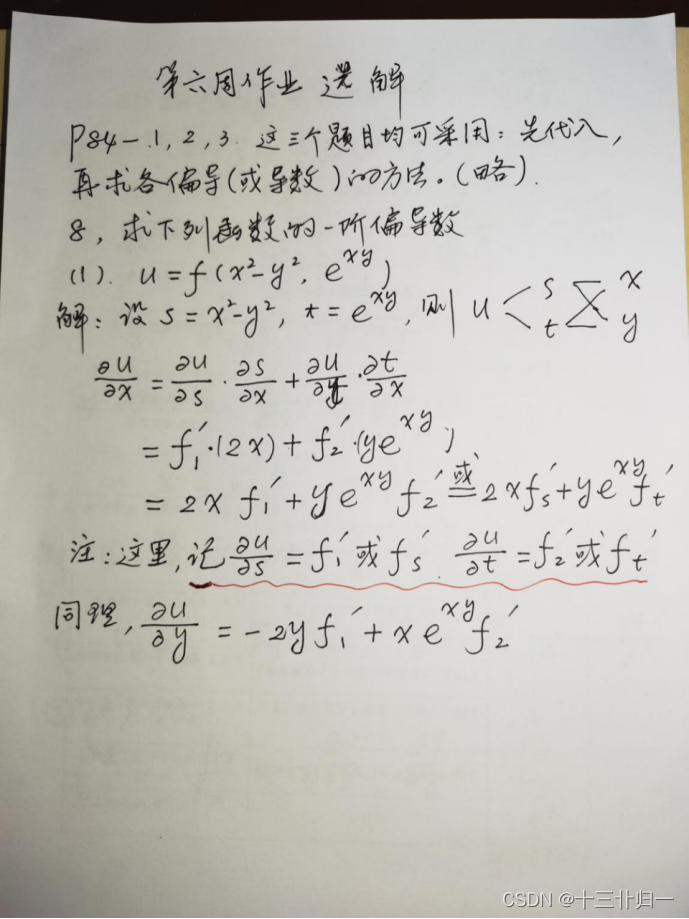 第六周作业 选解
P84-1,2,3. 这三个题目均可采用：先代入，
再求各偏导(或导数)的方法。(略).
8, 求下列函数的一阶偏导数
(1). u=f(x²-y², e^{xy})
解：设 s=x²-y², t=e^{xy}, 则 u < s t x y
∂u/∂x = ∂u/∂s · ∂s/∂x + ∂u/∂t · ∂t/∂x
= f₁′·(2x) + f₂′·(ye^{xy})
= 2x f₁′ + ye^{xy} f₂′ 或= 2x fs′ + ye^{xy} ft′
注：这里, 记 ∂u/∂s = f₁′ 或 fs′. ∂u/∂t = f₂′ 或 ft′
同理, ∂u/∂y = -2y f₁′ + x e^{xy} f₂′
CSDN @十三卝归一